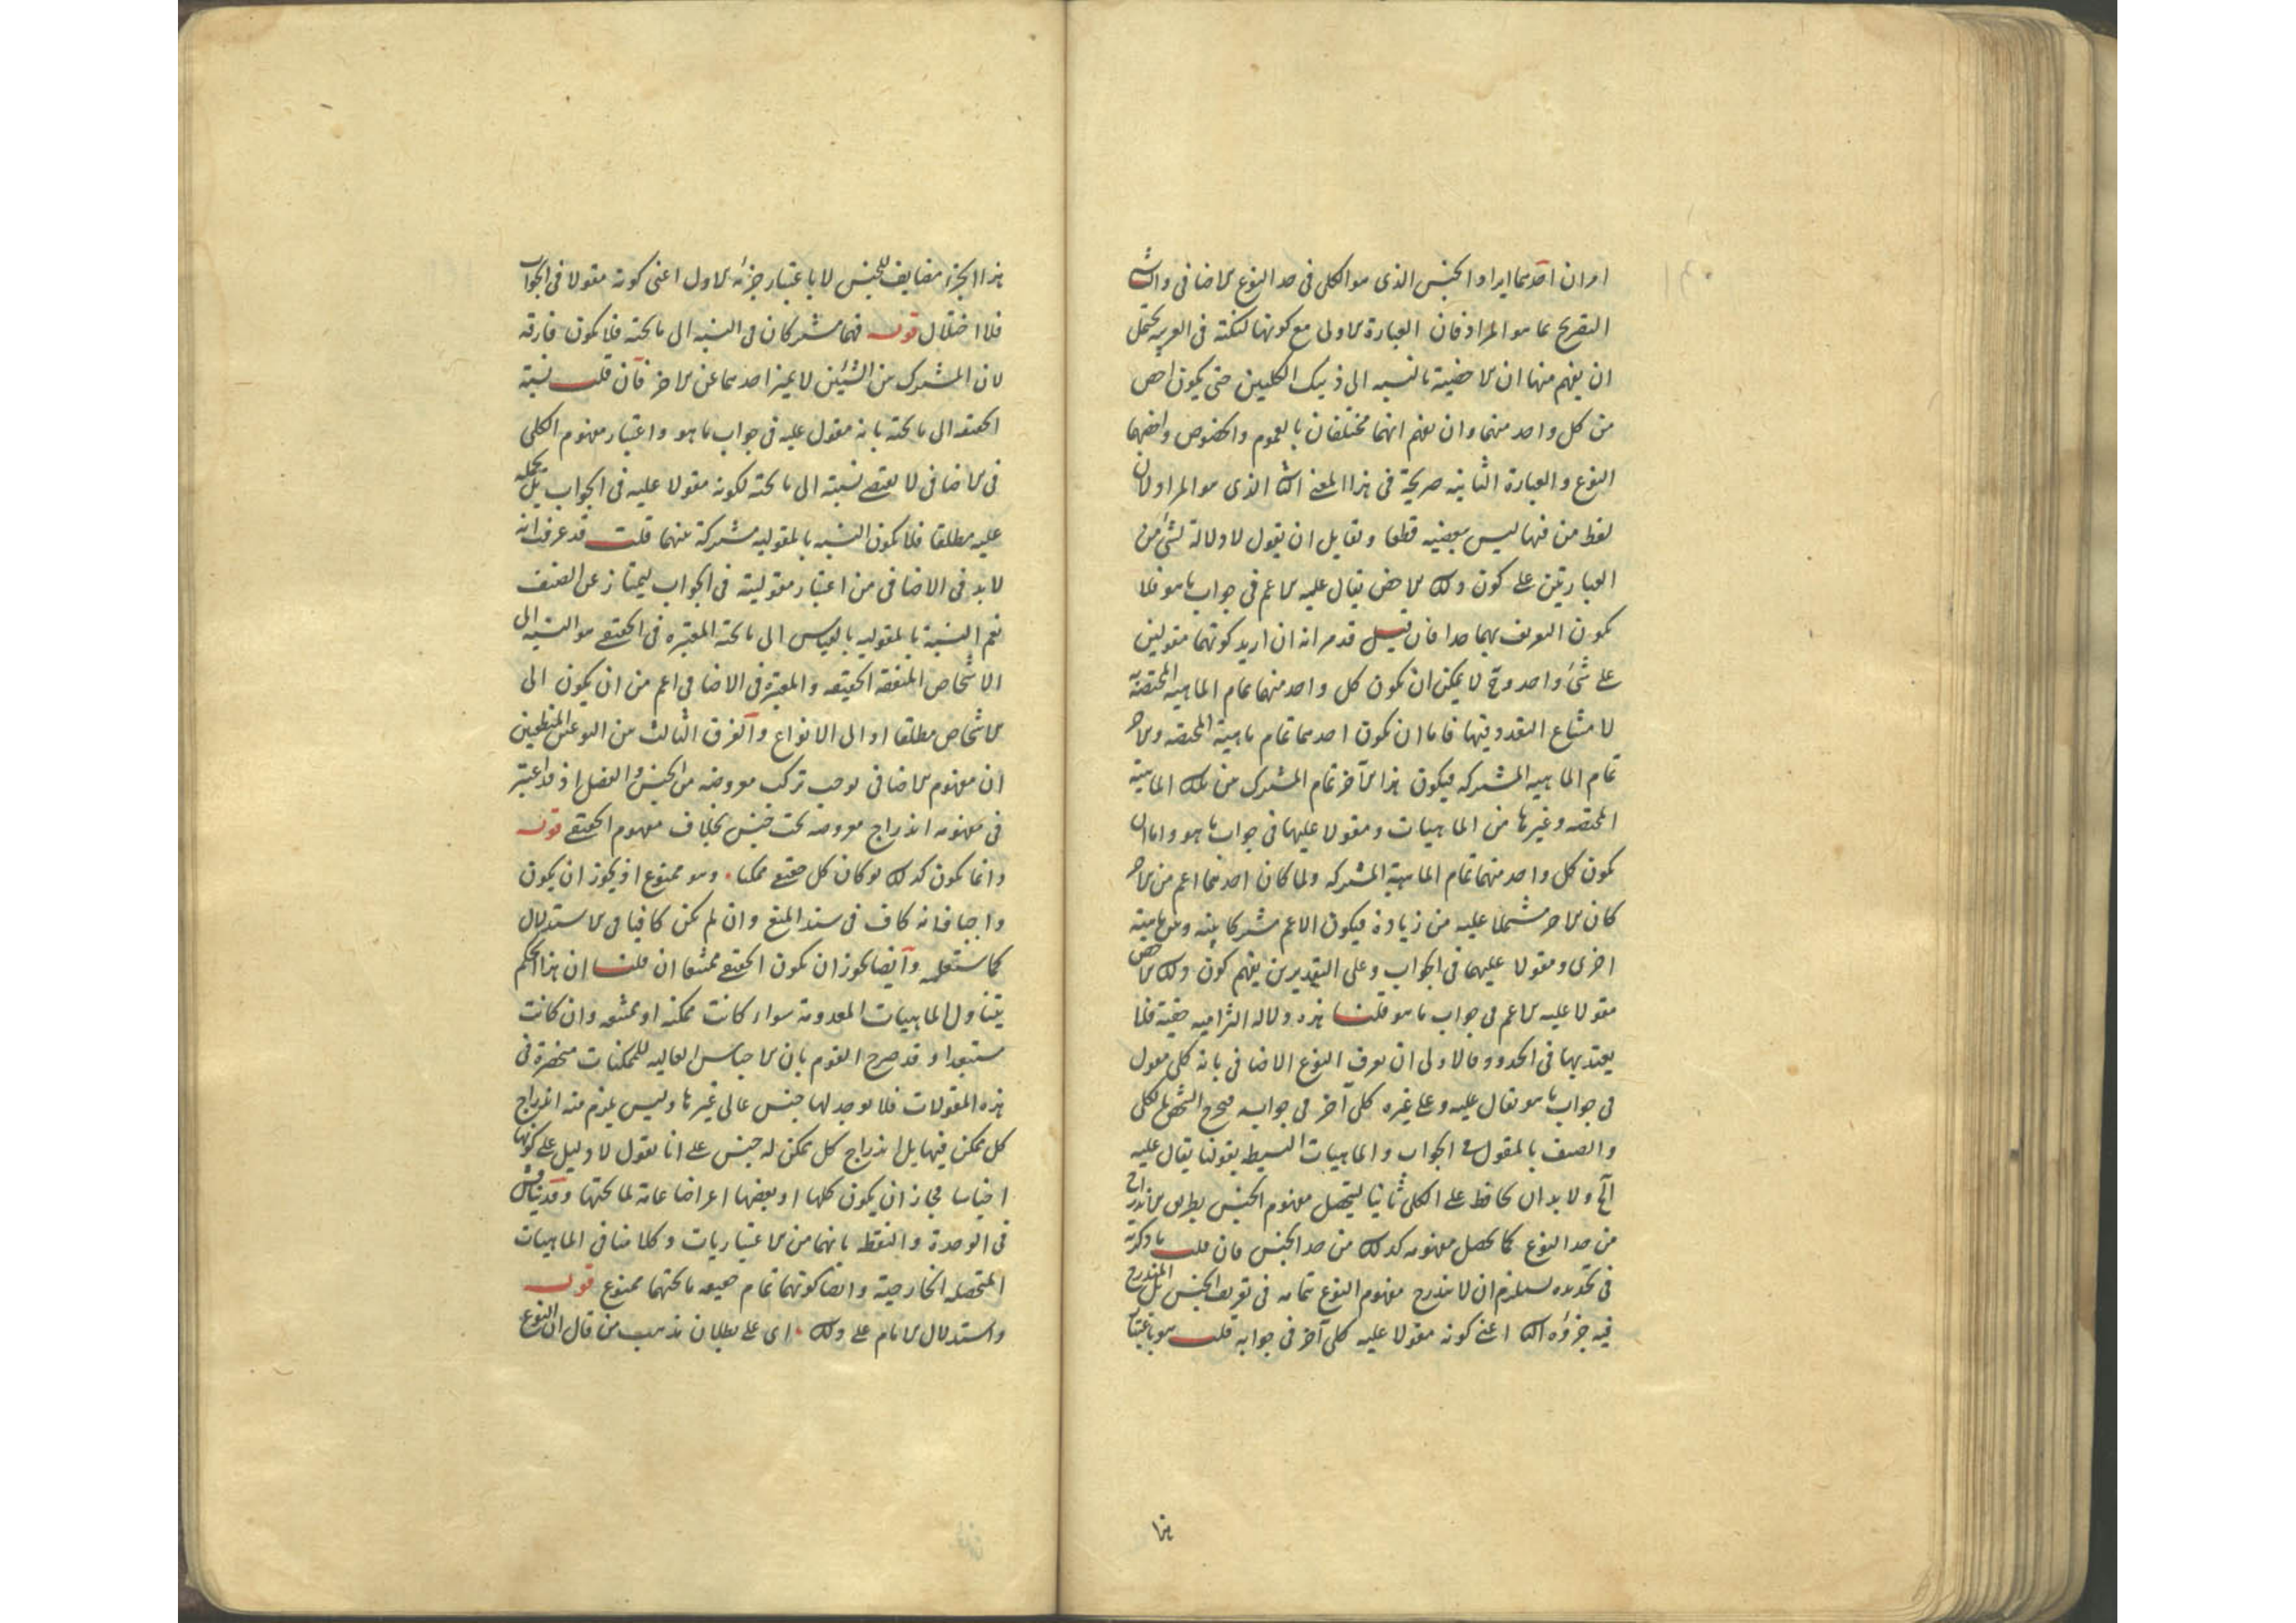 امران احدهما ايراد الجنس الذى هو الكلى فى حد النوع الاضافى والثانى
التصريح بما هو المراد فان العبارة الاولى مع كونها لكنة فى العربية يحتمل
ان يفهم منها ان الاخصية بالنسبة الى ذينك الكليين حتى يكون اخص
من كل واحد منهما وان يفهم انهما مختلفان بالعموم والخصوص واخصهما
النوع والعبارة الثانية صريحة فى هذا المعنى الثانى الذى هو المراد لان
لفظ من فيها ليس بعضية قطعا ولقايل ان يقول لا دلالة لشئ من
العبارتين على كون ذلك الاخص يقال عليه الاعم فى جواب ما هو فلا
يكون التعريف بهما حدا فان قيل قد مر انه ان اريد كونهما مقولين
على شئ واحد وح لا يمكن ان يكون كل واحد منهما تمام الماهية المختصة
لامتناع التعدد فيها فاما ان يكون احدهما تمام ماهيته المختصة والاخر
تمام الماهية المشتركة فيكون هذا الآخر تمام المشترك من تلك الماهية
المختصة وغيرها من الماهيات ومقولا عليها فى جواب ما هو واما ان
يكون كل واحد منهما تمام الماهية المشتركة ولما كان احدهما اعم من الاخر
كان الاخر مشتملا عليه من زيادة فيكون الاعم مشتركا بينه وبين ماهية
اخرى ومقولا عليهما فى الجواب وعلى التقديرين يفهم كون ذلك الاخص
مقولا عليه الاعم فى جواب ما هو قلنا هذه دلالة التزامية خفية فلا
يعتد بها فى الحدود فالاولى ان يعرف النوع الاضافى بانه كلى مقول
فى جواب ما هو يقال عليه وعلى غيره كلى آخر فى جوابه فيخرج الشخص بالكلى
والصنف بالمقول فى الجواب والماهيات البسيطة بقولنا يقال عليه
الخ ولا بد ان يحافظ على الكلى ثانيا ليتحصل مفهوم الجنس بطريق الاندراج
من حد النوع كما يحصل مفهومه كذلك من حد الجنس فان قلت ما ذكرته
فى تحديده يستلزم ان لا يندرج مفهوم النوع بتمامه فى تعريف الجنس بل المندرج
فيه جزؤه الثانى اعنى كونه مقولا عليه كلى آخر فى جوابه قلت هو باعتبار
هذا
هذا الجزء مضايف للجنس لا باعتبار جزئه الاول اعنى كونه مقولا فى الجواب
فلا اختلال قوله فهما مشتركان فى النسبة الى ما تحته فلا يكون فارقة
لان المشترك من الشيئين لا يميز احدهما عن الاخر فان قلت نسبة
الحقيقة الى ما تحته بانه مقول عليه فى جواب ما هو واعتبار مفهوم الكلى
فى الاضافى لا يقتضى نسبته الى ما تحته لكونه مقولا عليه فى الجواب بل بحمله
عليه مطلقا فلا يكون النسبة بالمقولية مشتركة بينهما قلت قد عرفت انه
لا بد فى الاضافى من اعتبار مقوليته فى الجواب ليمتاز عن الصنف
نعم النسبة بالمقولية بالقياس الى ما تحته المعتبرة فى الحقيقى هو النسبة الى
الاشخاص المتفقة الحقيقة والمعتبرة فى الاضافى اعم من ان يكون الى
الاشخاص مطلقا او الى الانواع والفرق الثالث من النوعين المنطقيين
ان مفهوم الاضافى يوجب تركب معروضه من الجنس والفصل اذ قد اعتبر
فى مفهومه اندراج معروضه تحت جنس بخلاف مفهوم الحقيقى قوله
وانما يكون كذلك لو كان كل حقيقى ممكنا وهو ممنوع اذ يجوز ان يكون
واجبا فانه كاف فى سند المنع وان لم يكن كافيا فى الاستدلال
كما ستعلمه وايضا يجوز ان يكون الحقيقى ممتنعا ان قلت ان هذا الحكم
يتناول الماهيات المعدومة سواء كانت ممكنة او ممتنعة وان كانت
مستبعدا وقد صرح القوم بان الاجناس العالية للممكنات منحصرة فى
هذه المقولات فلا يوجد لها جنس عالى غيرها وليس يلزم منه اندراج
كل ممكن فيها بل اندراج كل ممكن له جنس على انا نقول لا دليل على كونها
اجناسا فجاز ان يكون كلها او بعضها اعراضا عامة لما تحتها وقد يناقش
فى الوحدة والنقطة بانهما من الاعتباريات وكلامنا فى الماهيات
المتحصلة الخارجية وايضا كونهما تمام حقيقة ما تحتهما ممنوع قوله
واستدلال الامام على ذلك اى على بطلان مذهب من قال ان النوع